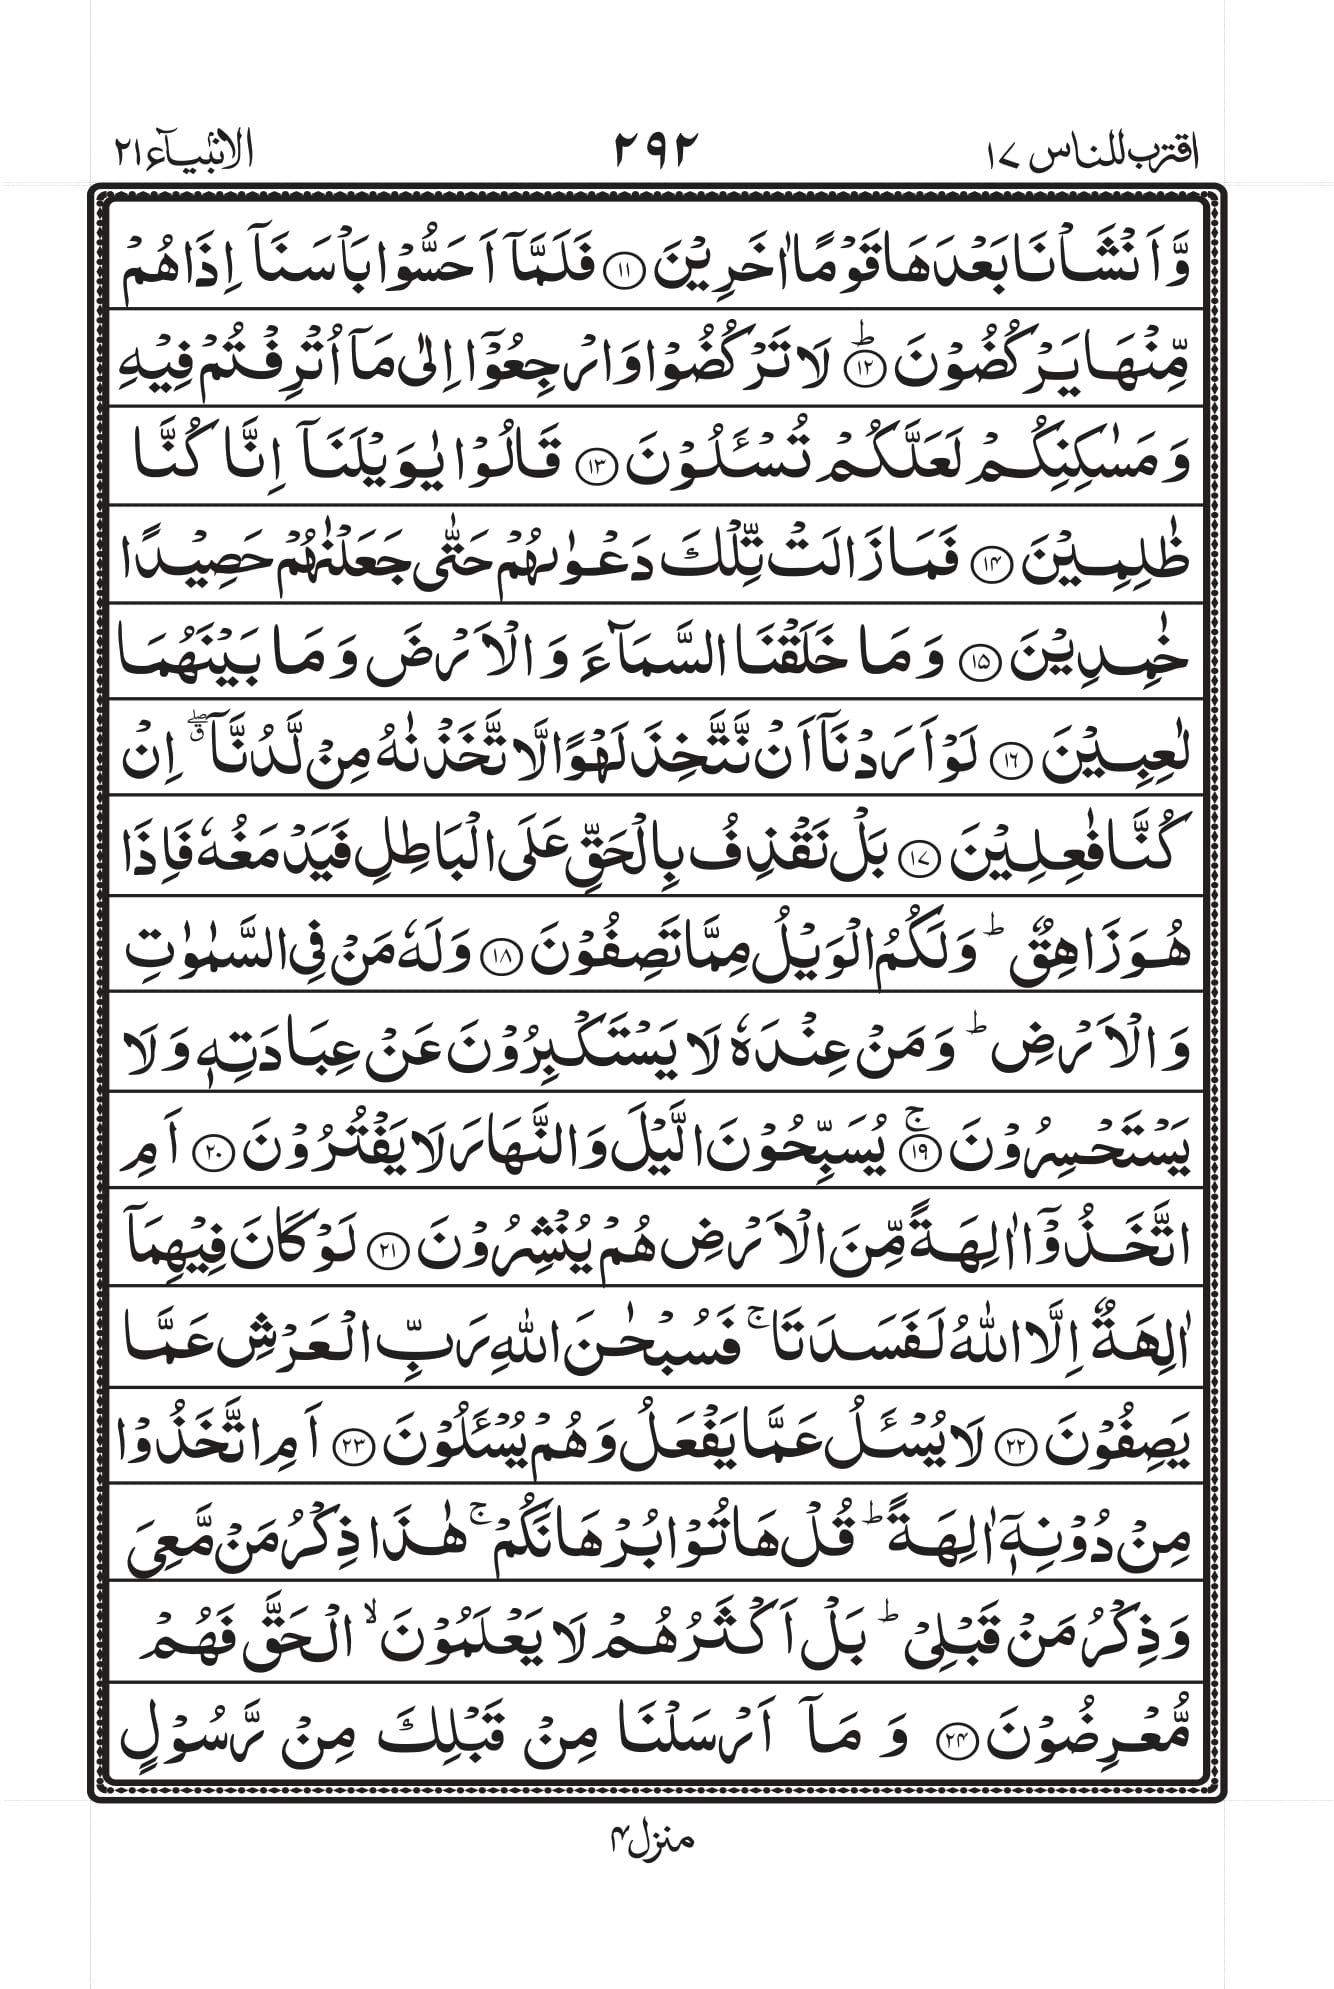 اقترب للناس ١٧ ٢٩٢ الانبیآء ٢١
وَّاَنْشَاْنَا بَعْدَهَا قَوْمًا اٰخَرِيْنَ ۝١١ فَلَمَّاۤ اَحَسُّوْا بَاْسَنَاۤ اِذَا هُمْ
مِّنْهَا يَرْكُضُوْنَ ؕ۝١٢ لَا تَرْكُضُوْا وَارْجِعُوْۤا اِلٰى مَاۤ اُتْرِفْتُمْ فِيْهِ
وَمَسٰكِنِكُمْ لَعَلَّكُمْ تُسْـَٔلُوْنَ ۝١٣ قَالُوْا يٰوَيْلَنَاۤ اِنَّا كُنَّا
ظٰلِمِيْنَ ۝١٤ فَمَا زَالَتْ تِّلْكَ دَعْوٰىهُمْ حَتّٰى جَعَلْنٰهُمْ حَصِيْدًا
خٰمِدِيْنَ ۝١٥ وَمَا خَلَقْنَا السَّمَآءَ وَالْاَرْضَ وَمَا بَيْنَهُمَا
لٰعِبِيْنَ ۝١٦ لَوْ اَرَدْنَاۤ اَنْ نَّتَّخِذَ لَهْوًا لَّا تَّخَذْنٰهُ مِنْ لَّدُنَّاۤ ۖۗ اِنْ
كُنَّا فٰعِلِيْنَ ۝١٧ بَلْ نَقْذِفُ بِالْحَقِّ عَلَى الْبَاطِلِ فَيَدْمَغُهٗ فَاِذَا
هُوَ زَاهِقٌ ؕ وَلَكُمُ الْوَيْلُ مِمَّا تَصِفُوْنَ ۝١٨ وَلَهٗ مَنْ فِى السَّمٰوٰتِ
وَالْاَرْضِ ؕ وَمَنْ عِنْدَهٗ لَا يَسْتَكْبِرُوْنَ عَنْ عِبَادَتِهٖ وَلَا
يَسْتَحْسِرُوْنَ ۚ۝١٩ يُسَبِّحُوْنَ الَّيْلَ وَالنَّهَارَ لَا يَفْتُرُوْنَ ۝٢٠ اَمِ
اتَّخَذُوْۤا اٰلِهَةً مِّنَ الْاَرْضِ هُمْ يُنْشِرُوْنَ ۝٢١ لَوْ كَانَ فِيْهِمَاۤ
اٰلِهَةٌ اِلَّا اللّٰهُ لَفَسَدَتَا ۚ فَسُبْحٰنَ اللّٰهِ رَبِّ الْعَرْشِ عَمَّا
يَصِفُوْنَ ۝٢٢ لَا يُسْـَٔلُ عَمَّا يَفْعَلُ وَهُمْ يُسْـَٔلُوْنَ ۝٢٣ اَمِ اتَّخَذُوْا
مِنْ دُوْنِهٖۤ اٰلِهَةً ؕ قُلْ هَاتُوْا بُرْهَانَكُمْ ۚ هٰذَا ذِكْرُ مَنْ مَّعِيَ
وَذِكْرُ مَنْ قَبْلِيْ ؕ بَلْ اَكْثَرُهُمْ لَا يَعْلَمُوْنَ ۙ الْحَقَّ فَهُمْ
مُّعْرِضُوْنَ ۝٢٤ وَمَاۤ اَرْسَلْنَا مِنْ قَبْلِكَ مِنْ رَّسُوْلٍ
منزل ۴